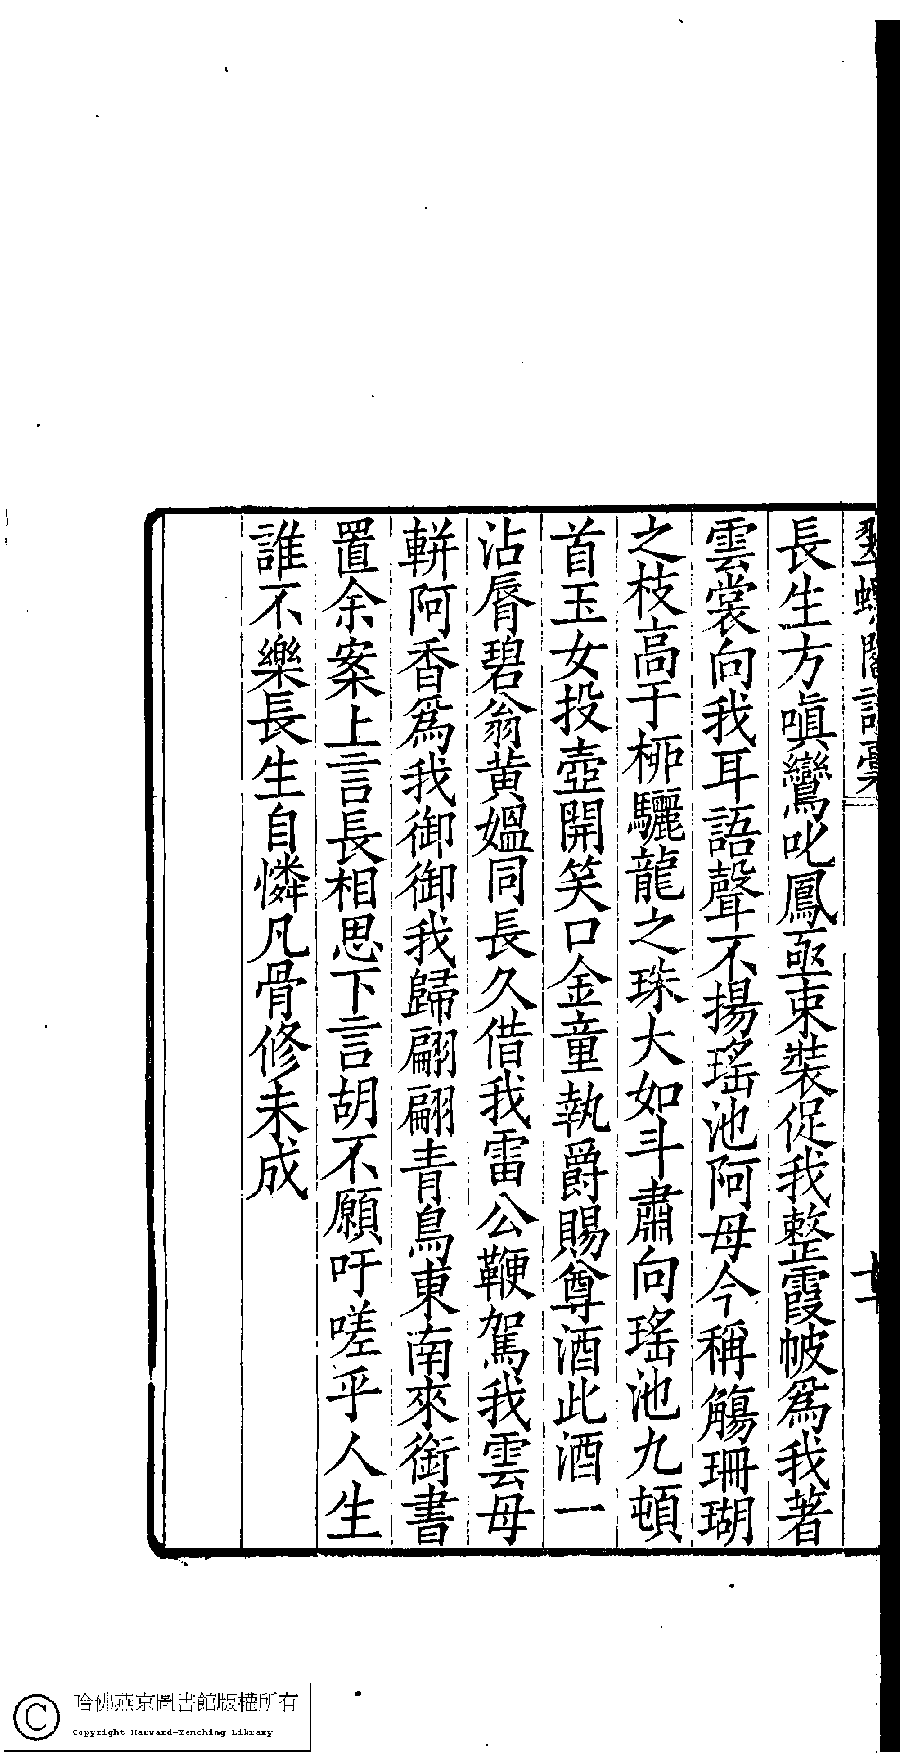 翠螺閣詩稾
十一
長生方嗔鸞叱鳳亟束裝促我整霞帔爲我著
雲裳向我耳語聲不揚瑤池阿母今稱觴珊瑚
之枝高于桺驪龍之珠大如斗肅向瑤池九頓
首玉女投壺開笑口金童執爵賜尊酒此酒一
沾脣碧翁黄媼同長久借我雷公鞭駕我雲母
軿阿香爲我御御我歸翩翩青鳥東南來銜書
置余案上言長相思下言胡不願吁嗟乎人生
誰不樂長生自憐凡骨修未成
哈佛燕京圖書館版權所有
Copyright Harvard-Yenching Library